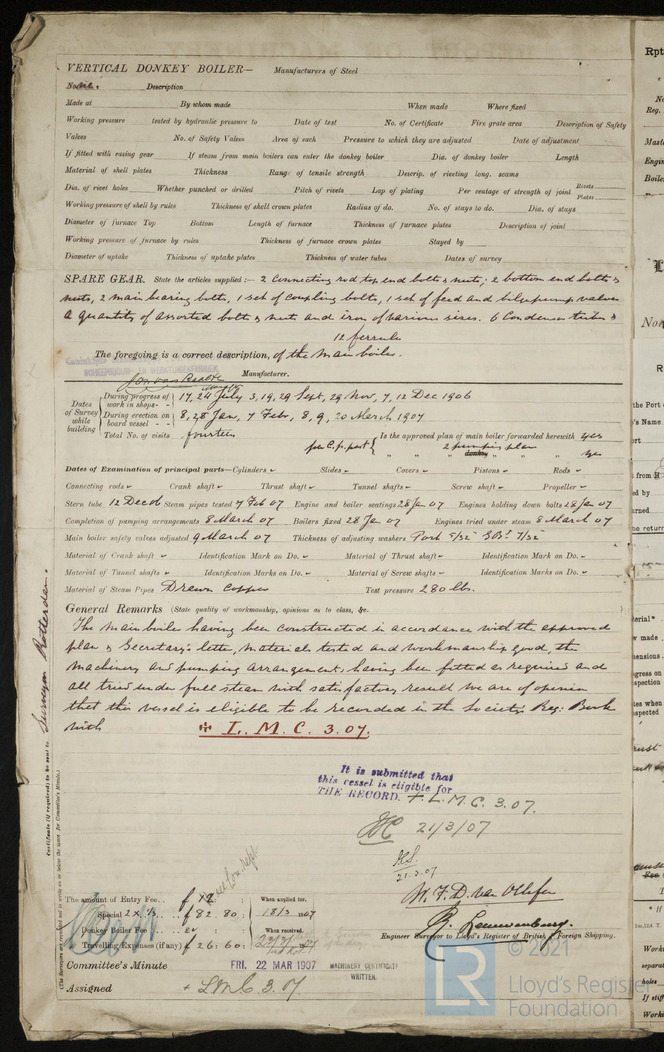 VERTICAL DONKEY BOILER— Manufacturers of Steel
No. None. Description
Made at By whom made When made Where fixed
Working pressure tested by hydraulic pressure to Date of test No. of Certificate Fire grate area Description of Safety
Valves No. of Safety Valves Area of each Pressure to which they are adjusted Date of adjustment
If fitted with easing gear If steam from main boilers can enter the donkey boiler Dia. of donkey boiler Length
Material of shell plates Thickness Range of tensile strength Descrip. of riveting long. seams
Dia. of rivet holes Whether punched or drilled Pitch of rivets Lap of plating Per centage of strength of joint Rivets Plates
Working pressure of shell by rules Thickness of shell crown plates Radius of do. No. of stays to do. Dia. of stays
Diameter of furnace Top Bottom Length of furnace Thickness of furnace plates Description of joint
Working pressure of furnace by rules Thickness of furnace crown plates Stayed by
Diameter of uptake Thickness of uptake plates Thickness of water tubes Dates of survey
SPARE GEAR. State the articles supplied:— 2 Connecting rod top end bolts & nuts; 2 bottom end bolts &
nuts, 2 main bearing bolts, 1 set of coupling bolts, 1 set of feed and bilge pump valves
A quantity of assorted bolts & nuts and iron of various sizes. 6 Condenser tubes &
12 ferrules
The foregoing is a correct description, of the Main boiler.
Manufacturer.
Dates of Survey while building
During progress of work in shops - - 17, 24 July 3, 19, 29 Sept, 29 Nov, 7, 12 Dec 1906
During erection on board vessel - - 8, 28 Jan, 7 Febr, 8, 9, 20 March 1907
Total No. of visits fourteen
Is the approved plan of main boiler forwarded herewith yes
" " " donkey " " " yes
Dates of Examination of principal parts—Cylinders Slides Covers Pistons Rods
Connecting rods Crank shaft Thrust shaft Tunnel shafts Screw shaft Propeller
Stern tube 12 Dec 06 Steam pipes tested 7 Feb 07 Engine and boiler seatings 28 Jan 07 Engines holding down bolts 28 Jan 07
Completion of pumping arrangements 8 March 07 Boilers fixed 28 Jan 07 Engines tried under steam 8 March 07
Main boiler safety valves adjusted 9 March 07 Thickness of adjusting washers Port 5/32" 7/32"
Material of Crank shaft Identification Mark on Do. Material of Thrust shaft Identification Mark on Do.
Material of Tunnel shafts Identification Marks on Do. Material of Screw shafts Identification Marks on Do.
Material of Steam Pipes Drawn Copper Test pressure 280 lbs.
General Remarks (State quality of workmanship, opinions as to class, &c.
The Main boiler having been constructed in accordance with the approved
plan & Secretary's letter, materials tested and workmanship good, the
machinery and pumping arrangement, having been fitted as required and
all tried under full steam with satisfactory result we are of opinion
that this vessel is eligible to be recorded in the Society's Reg. Book
with L. M. C. 3. 07.
It is submitted that
this vessel is eligible for
THE RECORD. + L. M. C. 3. 07.
21/3/07
21.3.07
Certificate (if required) to be sent to Surveyor Rotterdam.
The amount of Entry Fee..
Special £ 82. 80: When applied for, 18/3 1907
Donkey Boiler Fee When received,
Travelling Expenses (if any) £ 26: 60:
W. F. D. van Ollefen
Engineer Surveyor to Lloyd's Register of British & Foreign Shipping.
Committee's Minute FRI. 22 MAR 1907
MACHINERY CERTIFICATE
WRITTEN.
Assigned + LMC 3. 07
© 2021
LR
Lloyd's Register
Foundation
Rpt